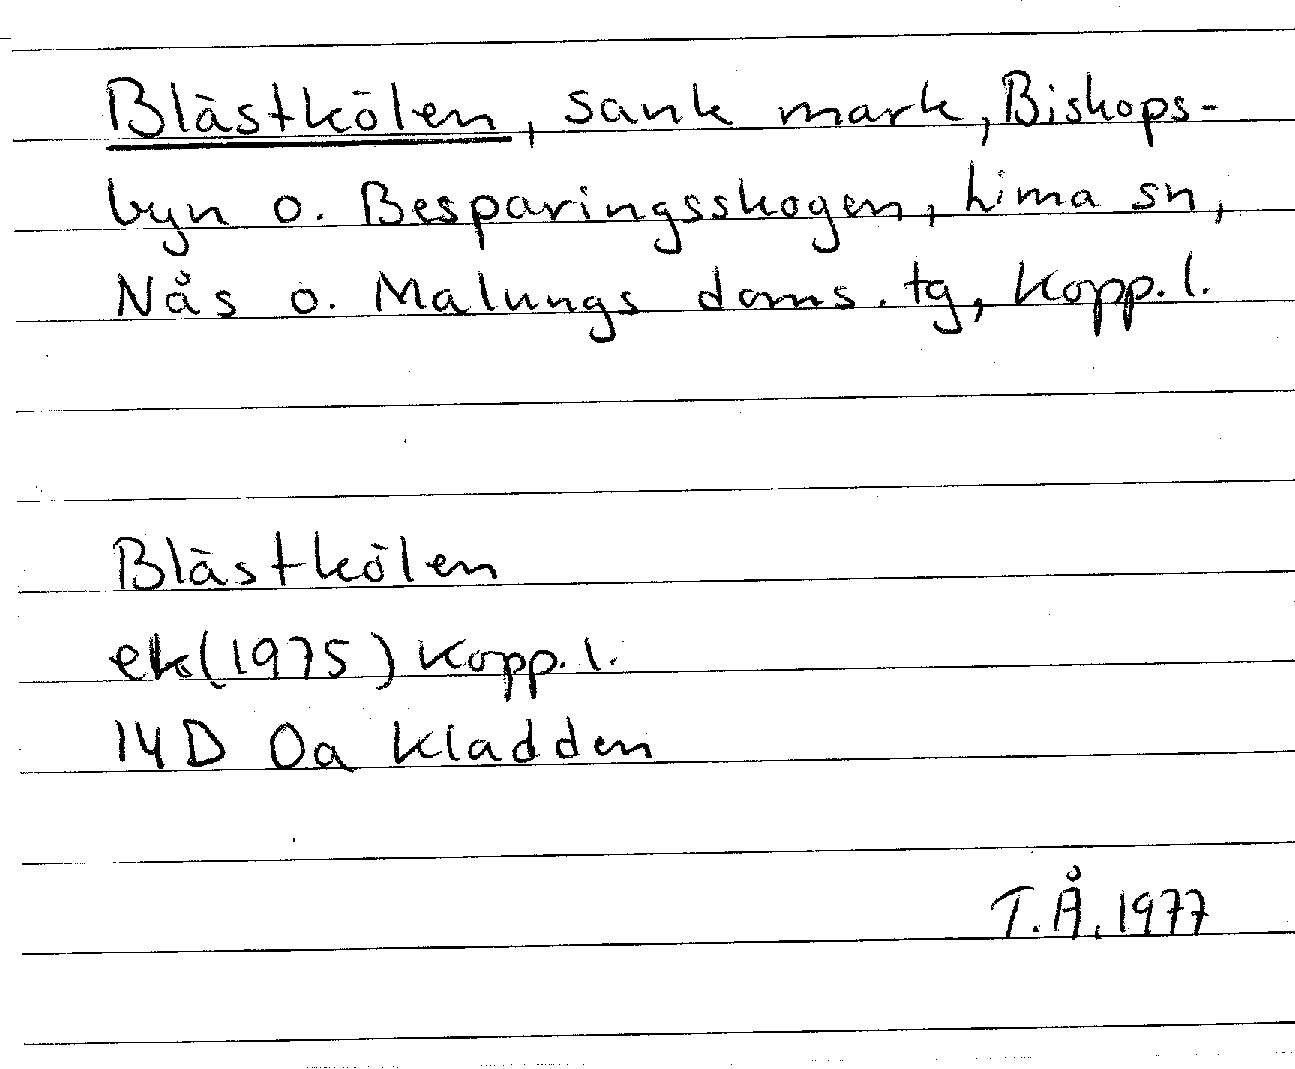 Blästkölen, sank mark, Biskops-
byn o. Besparingsskogen, Lima sn,
Nås o. Malungs doms. tg, Kopp. l.
Blästkölen
ek (1975) Kopp. l.
14D 0a Kladden
T.Å. 1977